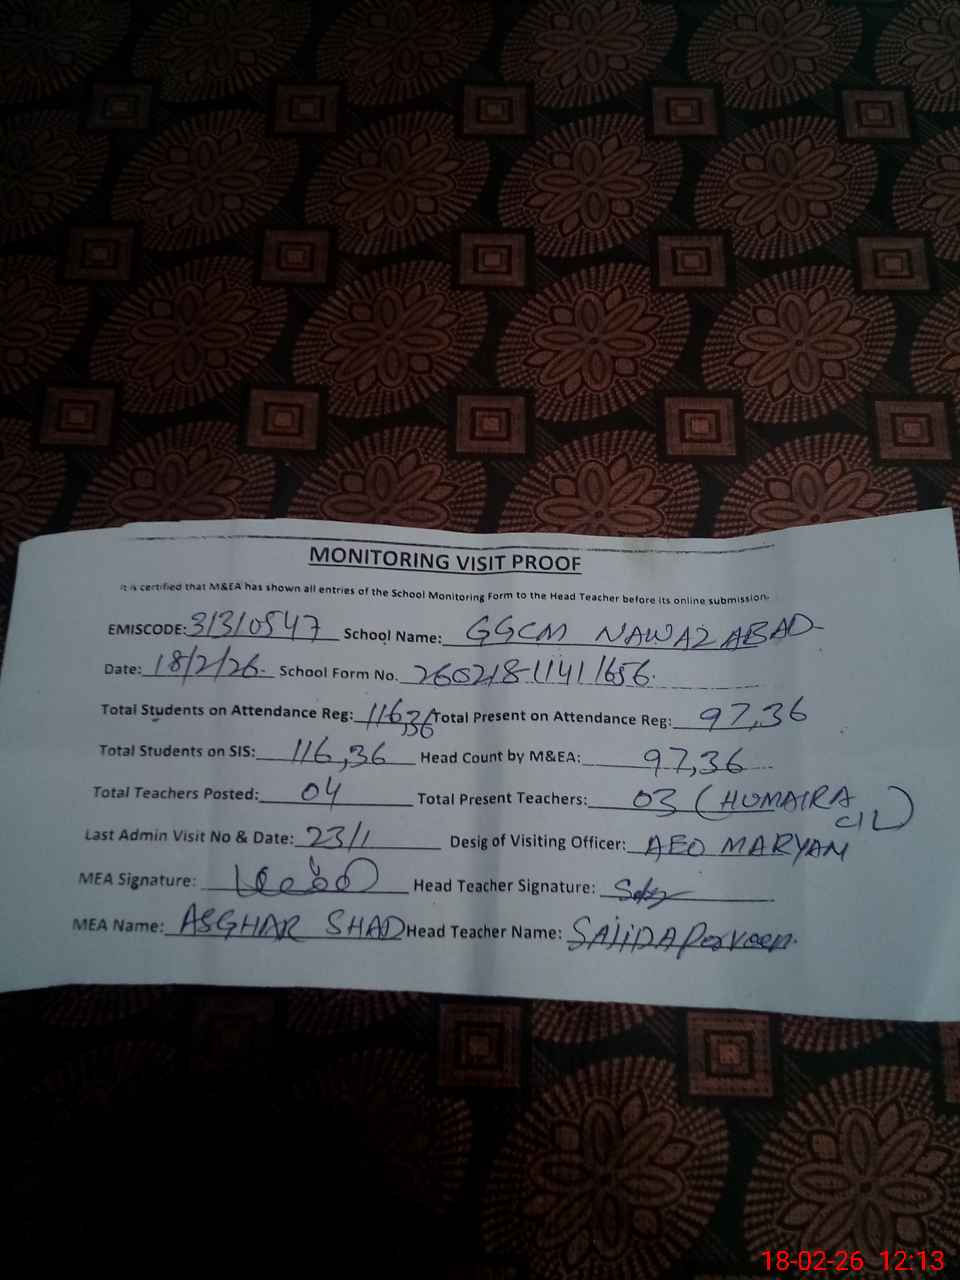 MONITORING VISIT PROOF
It is certified that M&EA has shown all entries of the School Monitoring Form to the Head Teacher before its online submission.
EMISCODE: 31310547 School Name: GGCM NAWAZABAD
Date: 18/2/26 School Form No. 260218-11411656
Total Students on Attendance Reg: 116,36 Total Present on Attendance Reg: 97,36
Total Students on SIS: 116,36 Head Count by M&EA: 97,36
Total Teachers Posted: 04 Total Present Teachers: 03 (HUMAIRA
CIL)
Last Admin Visit No & Date: 23/1 Desig of Visiting Officer: AEO MARYAM
MEA Signature: Head Teacher Signature:
MEA Name: ASGHAR SHAD Head Teacher Name: SAJIDA Perveen.
18-02-26 12:13